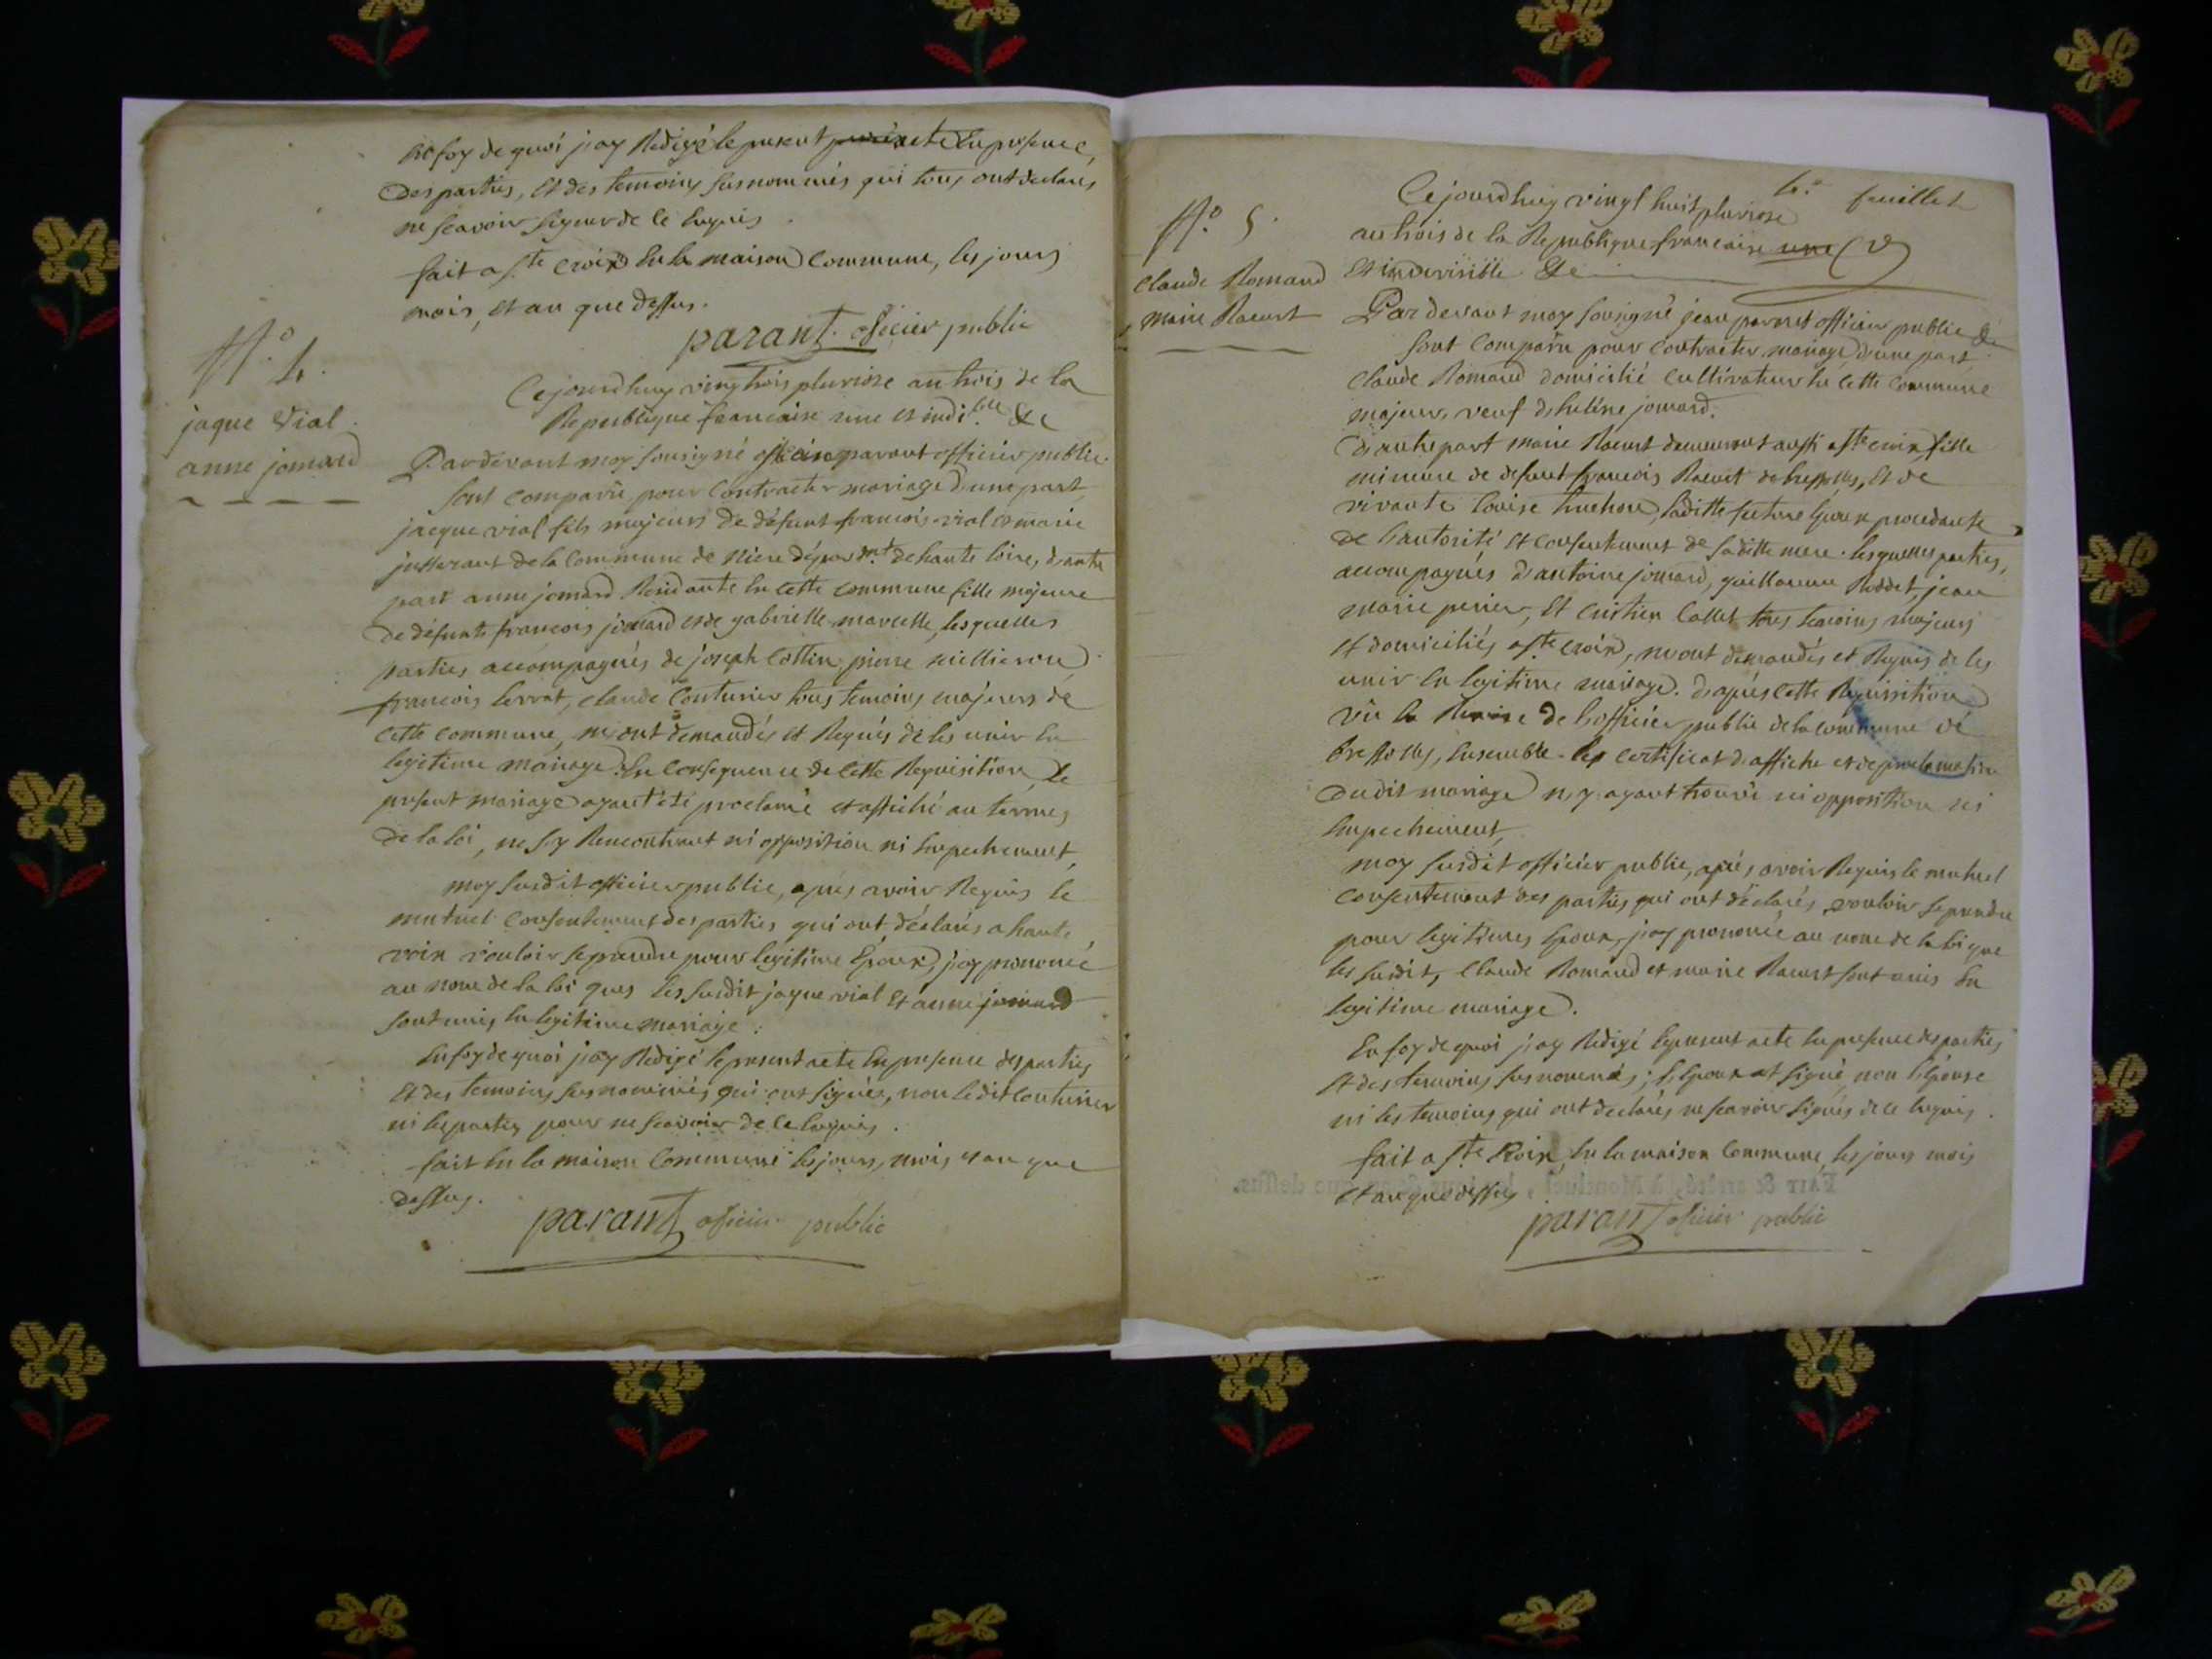 En foy de quoi j'ay Redigé le present acte En presence,
des parties, Et des temoins susnommés qui tous ont declarés
ne scavoir signer de ce Enquis.
fait a Ste croix En la maison Commune, les jours
mois, Et an que dessus.
parant officier public
N.o 4.
jaque Vial
anne jomard
Cejourdhuy vingtrois pluviose an trois de la
Republique francaise une et indi.ble &c
Pardevant moy sousigné parant officier public
sont comparu pour contracter mariage d'une part
jacque vial fils majeurs de défunt francois vial et marie
de la Commune de départ.mt de haute loire, d'autre
part anne jomard Residante En cette commune fille majeure
de défunts francois jomard et de gabrielle marcelle, lesquelles
parties accompagnés de joseph Cottin, pierre millieron
francois ferrat, claude Couturier tous temoins majeurs de
cette commune, m'ont demandés et Requis de les unir En
legitime mariage. En Consequence de cette Requisition, Le
present mariage ayant été proclamé et affiché au termes
de la loi, ne s'y Rencontrant ni opposition ni Empechement,
moy susdit officier public, apres avoir Requis le
mutuel Consentement des parties qui ont déclarés a haute
voix vouloir se prendre pour legitime Epoux, j'ay prononcé
au nom de la loi ques les susdit jaque vial Et anne jomard
sont unis En legitime mariage.
En foy de quoi j'ay Redigé le present acte En presence des parties
Et des temoins susnommés, qui ont signés, non ledit Couturier
ni les parties pour ne scavoir de ce Enquis.
fait En la maison Commune les jours, mois et an que
dessus.
parant officier public
4.e feuillet
N.o 5.
Claude Romand
marie Racurt
Cejourdhuy vingt huit pluviose
an trois de la Republique francaise une
Et indivisible &c
Pardevant moy sousigné jean parant officier public &c
sont comparu pour contracter mariage d'une part
Claude Romand domicilié cultivateur En cette Commune
majeur, veuf d'hélène jomard.
D'autre part marie Racurt demeurant aussi a Ste croix, fille
mineure de defunt francois Racurt de bressolles, Et de
vivante Louise truchon, laditte future Epoux procedante
de l'autorité Et consentement de saditte mere. lesquelles parties,
accompagnés d'antoine jomard, guillaume Roddet, jean
marie perier, Et Collet tous temoins majeurs
Et domiciliés a Ste croix, m'ont demandés et Requis de les
unir En legitime mariage. d'après cette Requisition
Vu la Remise de l'officier public de la commune de
bressolles, Ensemble les certificat d'affiche et de proclamation
dudit mariage n'y ayant trouvé ni opposition ni
Empechement,
moy susdit officier public, après avoir Requis le mutuel
consentement des parties qui ont déclarés vouloir se prendre
pour legitimes Epoux, j'ay prononcé au nom de la loi que
les susdits, Claude Romand et marie Racurt sont unis En
legitime mariage.
En foy de quoi j'ay Redigé le present acte En presence des parties
Et des temoins susnommés; l'Epoux at signé, non l'Epouse
ni les temoins qui ont declarés ne scavoir signés de ce Enquis.
fait a Ste Croix, En la maison Commune, les jours mois
Et an que dessus
parant officier public